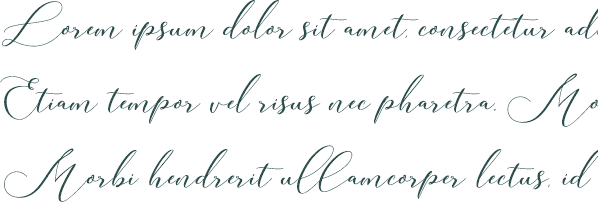 Lorem ipsum dolor sit amet, consectetur adi
Etiam tempor vel risus nec pharetra. Mo
Morbi hendrerit ullamcorper lectus, id